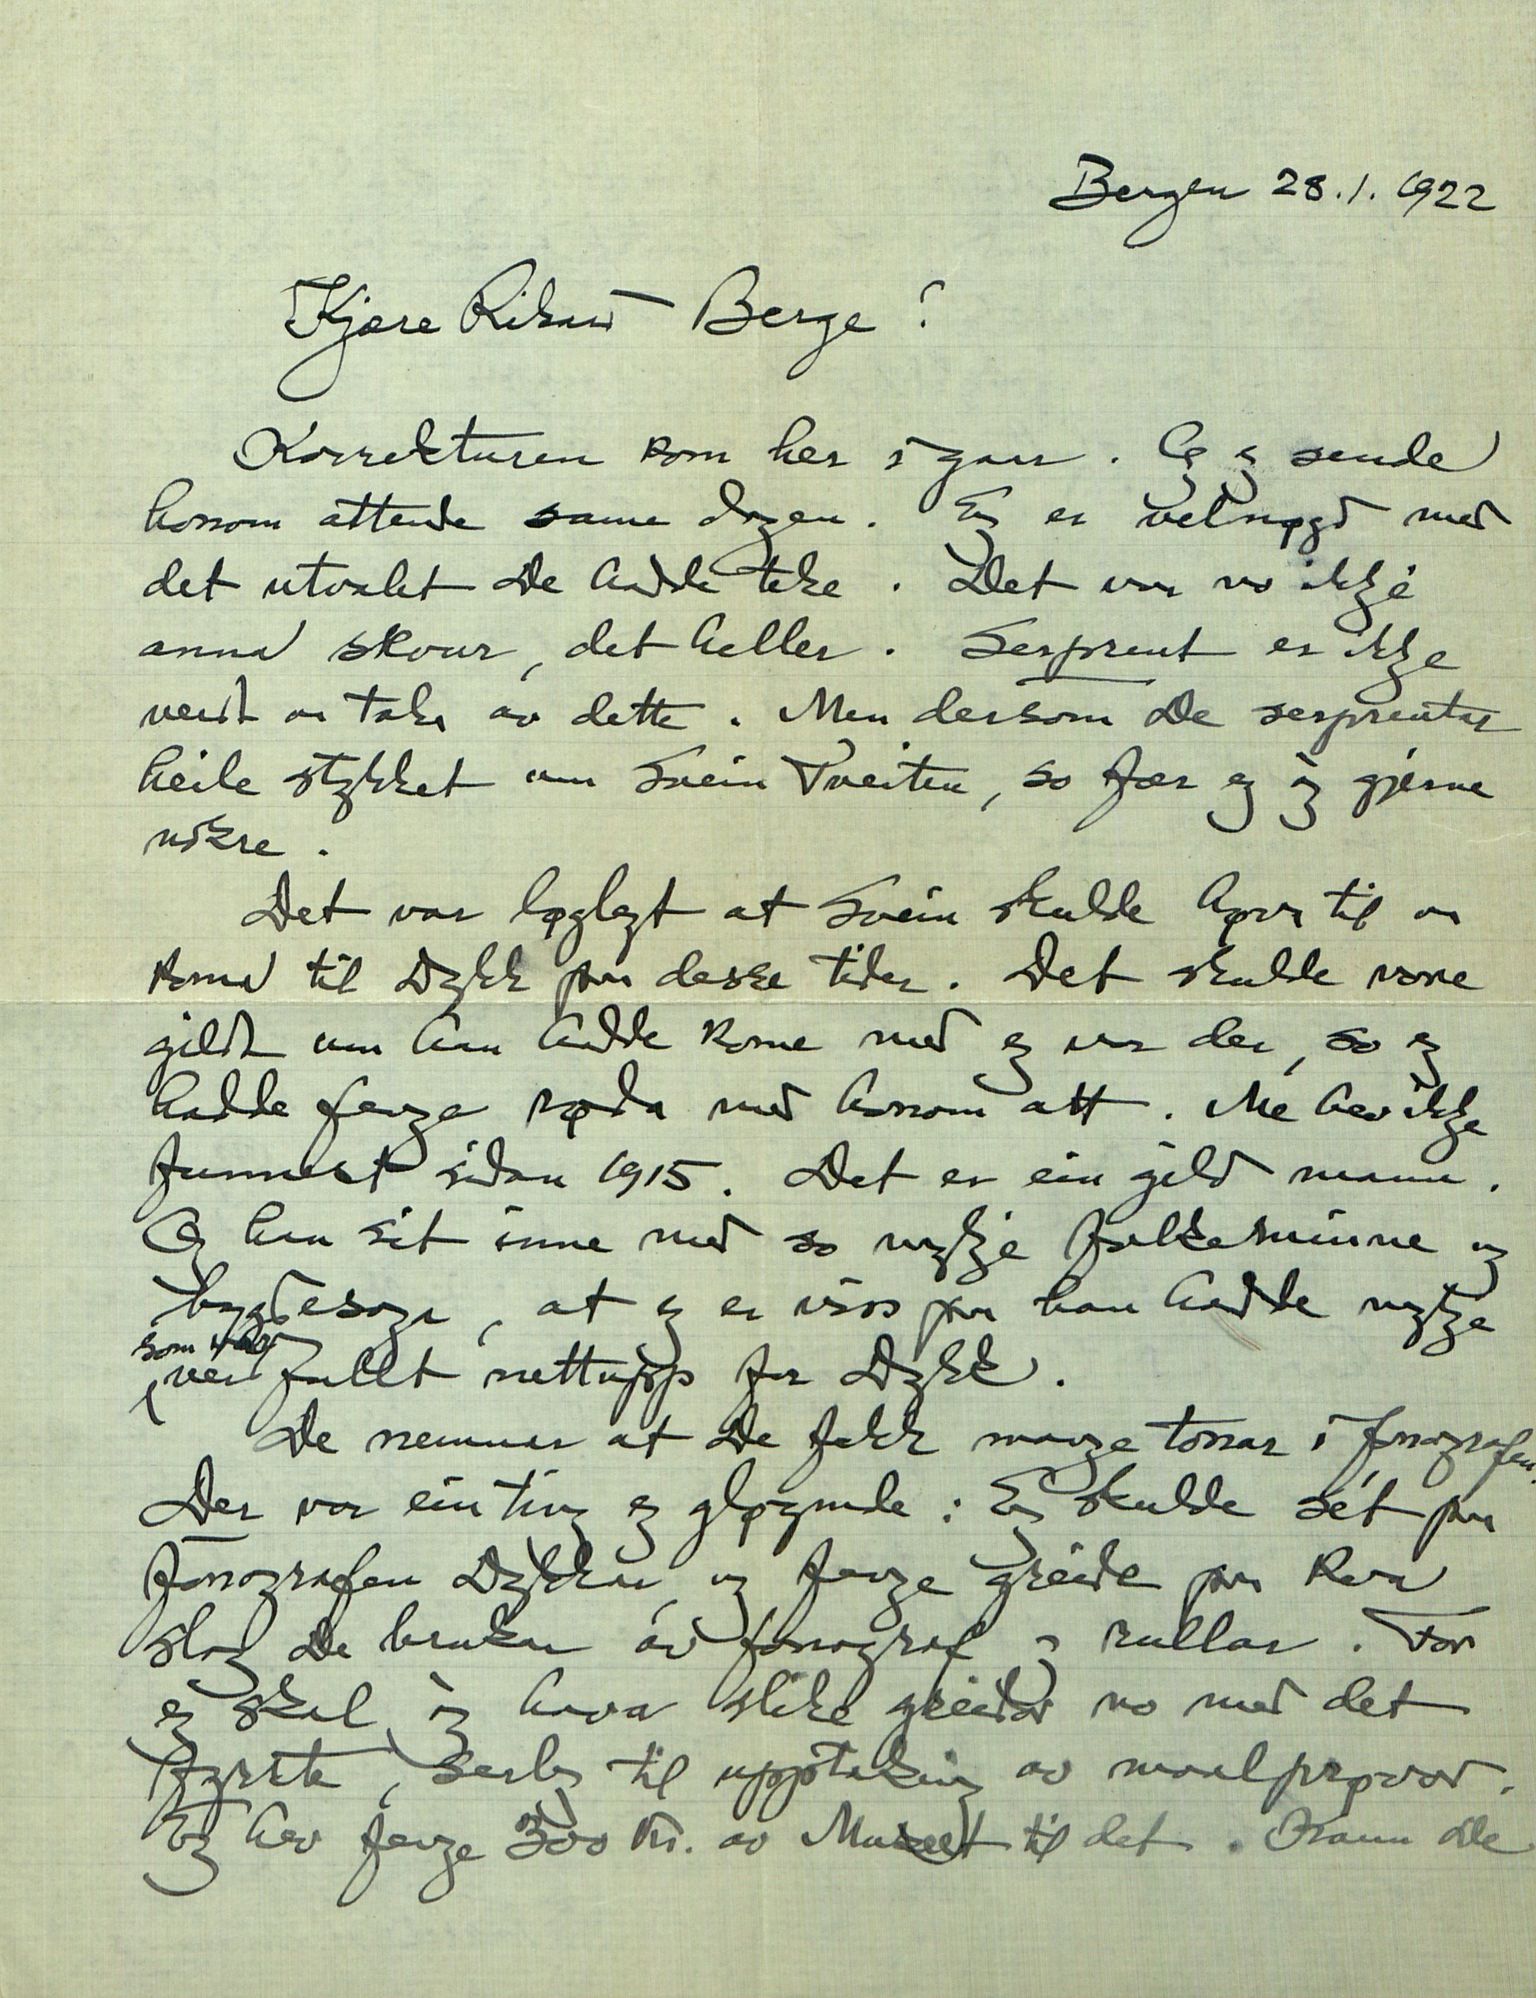 Bergen 28.1.1922
Kjære Rikard Berge!
Korrekturen kom her igaar. Og eg sende
honom attende same dagen. Eg er velnøgd med
det utvalet De hadde teke. Det var no ikkje
anna skour, det heller. Serprent er ikkje
verdt aa taka av dette. Men dersom De serprentar
heile stykket um Svein Tveiten, so fær eg òg gjerne
nokre.
Det var løglegt at Svein skulde høva til aa
koma til Dykk paa desse tider. Det skulde vore
gildt um han hadde kome med eg var der, so eg
hadde fenge røda med honom att. Me hev ikkje
funnest sidan 1915. Det er ein gild mann.
Og han sit inne med so mykje folkeminne og
bygdesoga, at eg er viss paa han hadde mykje
som var
verdfullt nettupp for Dykk.
De nemner at De fekk mange tonar i fonografen.
Der var ein ting eg gløymde: Eg skulde sét paa
fonografen Dykkar, og fenge greide paa kva
slag De brukar av fonograf og rullar. For
eg skal òg hava slike greidor no med det
fyrste, serleg til upptaking av maalprøvor.
Eg hev fenge 300 kr. av Museet til det. Kann De